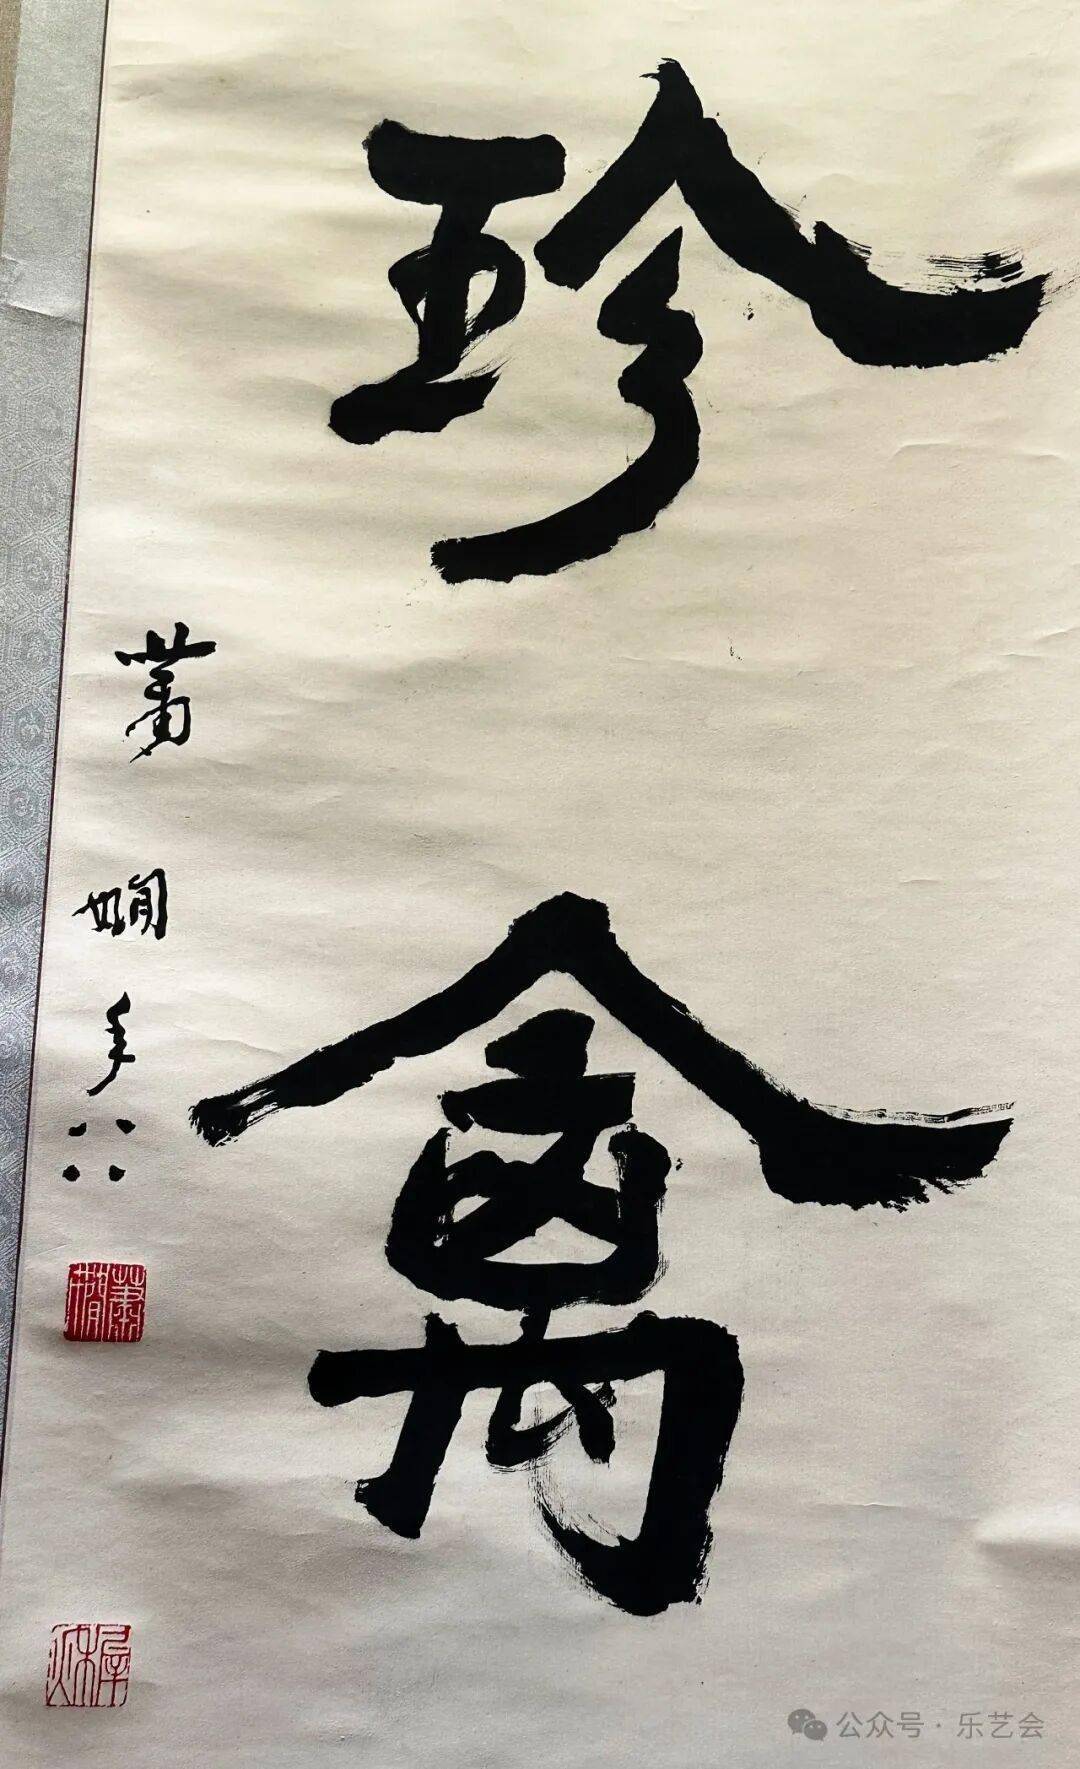 珍禽
萧娴年八八
萧娴
公众号·乐艺会